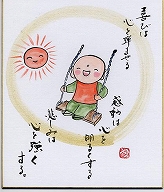 喜びは
心を弾ませる
感動は
心を
明るくする
悲しみは
心を
強く
する。